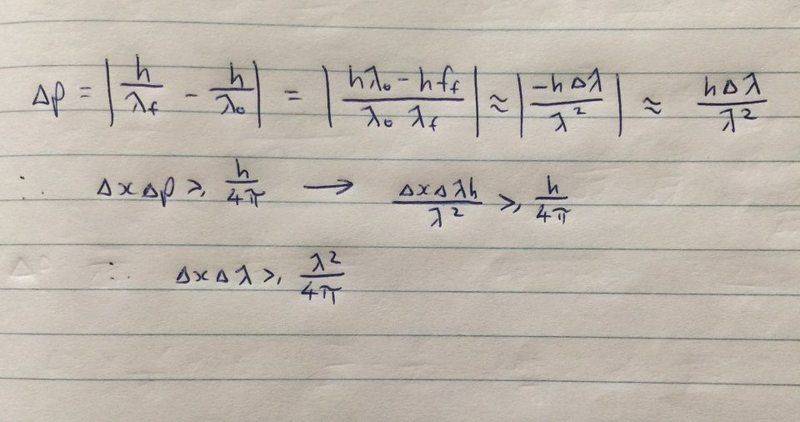 Δp = |h/λ_f - h/λ_o| = |(hλ_o - hf_f)/(λ_o λ_f)| ≈ |-hΔλ/λ²| ≈ hΔλ/λ²
∴ ΔxΔp ≥ h/4π → ΔxΔλh/λ² ≥ h/4π
∴ ΔxΔλ ≥ λ²/4π